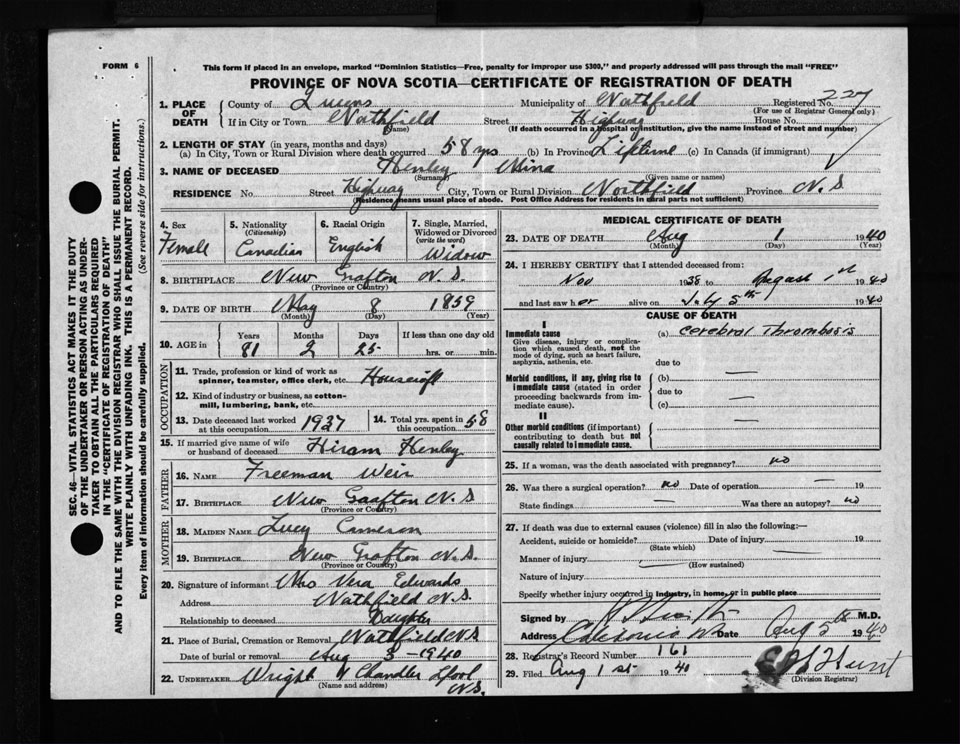 FORM 6
This form if placed in an envelope, marked "Dominion Statistics—Free, penalty for improper use $300," and properly addressed will pass through the mail "FREE"
PROVINCE OF NOVA SCOTIA—CERTIFICATE OF REGISTRATION OF DEATH
1. PLACE OF DEATH
County of Queens Municipality of Northfield Registered No. 227
(For use of Registrar General only)
If in City or Town Northfield Street Highway House No.
(Name) (If death occurred in a hospital or institution, give the name instead of street and number)
2. LENGTH OF STAY (in years, months and days)
(a) In City, Town or Rural Division where death occurred 58 yrs (b) In Province Liftime (c) In Canada (if immigrant)
3. NAME OF DECEASED Henley Mina
(Surname) (Given name or names)
RESIDENCE No. Street Highway City, Town or Rural Division Northfield Province N.S
(Residence means usual place of abode. Post Office Address for residents in rural parts not sufficient)
4. Sex Female
5. Nationality (Citizenship) Canadian
6. Racial Origin English
7. Single, Married, Widowed or Divorced (write the word) Widow
8. BIRTHPLACE New Grafton N.S.
(Province or Country)
9. DATE OF BIRTH May 8 1859
(Month) (Day) (Year)
10. AGE in Years Months Days If less than one day old
81 2 25 hrs. or min.
OCCUPATION
11. Trade, profession or kind of work as spinner, teamster, office clerk, etc.
12. Kind of industry or business, as cotton-mill, lumbering, bank, etc.
13. Date deceased last worked at this occupation 1937
14. Total yrs. spent in this occupation 58
15. If married give name of wife or husband of deceased Hiram Henley
FATHER
16. NAME Freeman Weir
17. BIRTHPLACE New Grafton N.S
(Province or Country)
MOTHER
18. MAIDEN NAME Lucy Cameron
19. BIRTHPLACE New Grafton N.S.
(Province or Country)
20. Signature of informant Mrs Vera Edwards
Address Northfield N.S.
Relationship to deceased Daughter
21. Place of Burial, Cremation or Removal Northfield N.S
Date of burial or removal Aug 3 - 1940
22. UNDERTAKER Wright Chandler Lpool N.S.
(Name and address)
MEDICAL CERTIFICATE OF DEATH
23. DATE OF DEATH Aug 1 1940
(Month) (Day) (Year)
24. I HEREBY CERTIFY that I attended deceased from:
Nov 1938 to August 1st 1940
and last saw her alive on July 5th 1940
CAUSE OF DEATH
I
Immediate cause (a) Cerebral Thrombosis
Give disease, injury or complication which caused death, not the mode of dying, such as heart failure, asphyxia, asthenia, etc.
due to
Morbid conditions, if any, giving rise to immediate cause (stated in order proceeding backwards from immediate cause). (b) —
due to —
(c) —
II
Other morbid conditions (if important) contributing to death but not causally related to immediate cause. —
25. If a woman, was the death associated with pregnancy? no
26. Was there a surgical operation? no Date of operation — 19
State findings — Was there an autopsy? no
27. If death was due to external causes (violence) fill in also the following:—
Accident, suicide or homicide? Date of injury — 19
(State which)
Manner of injury —
(How sustained)
Nature of injury —
Specify whether injury occurred in industry, in home, or in public place
Signed by M.D.
Address Caledonia Date Aug 5th 1940
28. Registrar's Record Number 161
29. Filed Aug 1st 1940 Hunt
(Division Registrar)
SEC. 46—VITAL STATISTICS ACT MAKES IT THE DUTY
OF THE UNDERTAKER OR PERSON ACTING AS UNDERTAKER TO OBTAIN ALL THE PARTICULARS REQUIRED
IN THE "CERTIFICATE OF REGISTRATION OF DEATH"
AND TO FILE THE SAME WITH THE DIVISION REGISTRAR WHO SHALL ISSUE THE BURIAL PERMIT.
WRITE PLAINLY WITH UNFADING INK. THIS IS A PERMANENT RECORD.
Every item of information should be carefully supplied. (See reverse side for instructions.)